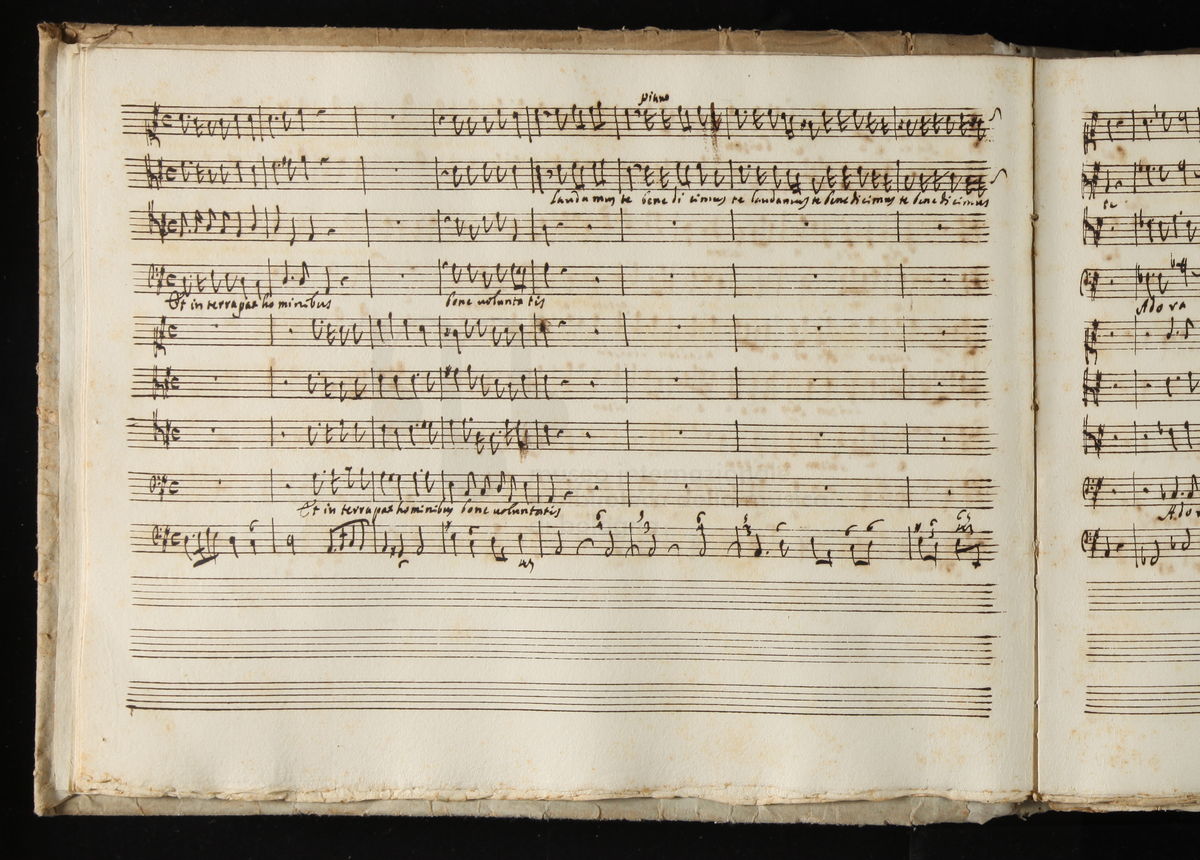 piano
laudamus te bene di cimus te laudamus te benedicimus te benedicimus
te
Et in terra pax ho minibus bone voluntatis
Ado ra
Et in terra pax hominibus bone voluntatis
Ador